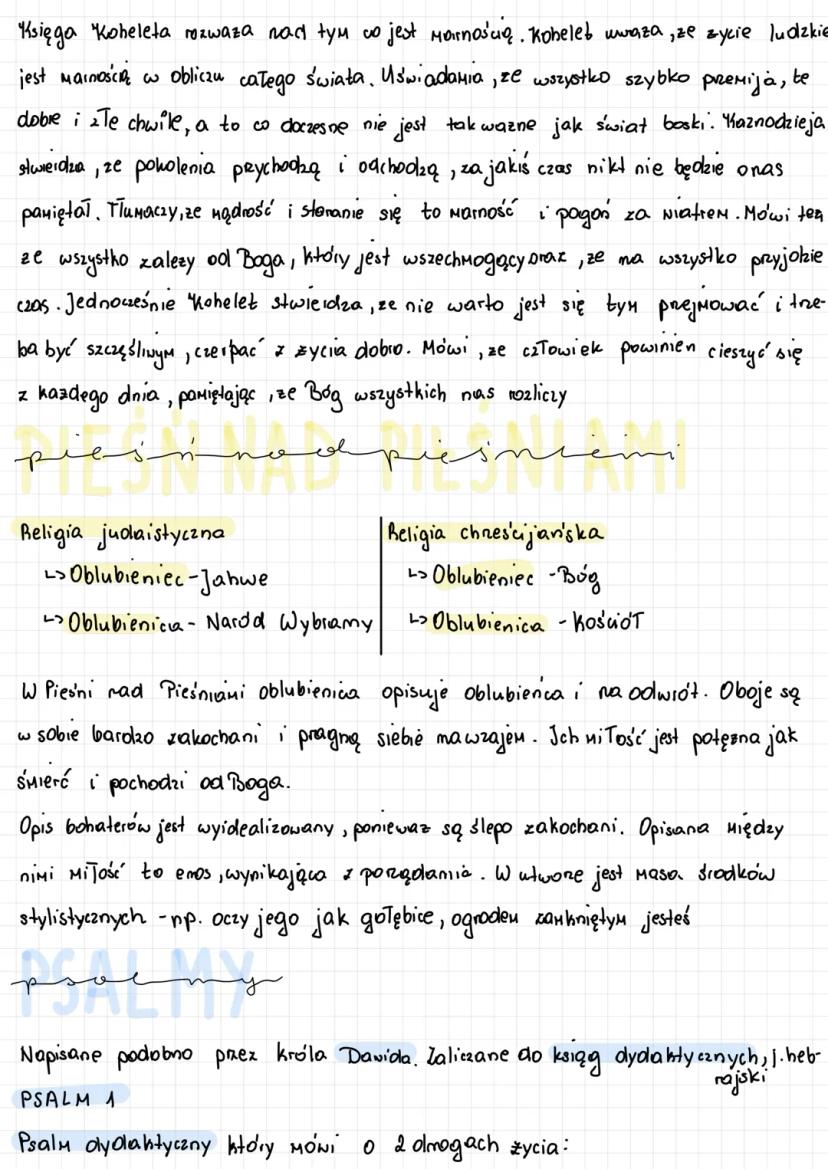 Księga Koheleta rozważa nad tym co jest marnością. Kohelet uważa, że życie ludzkie
jest marnością w obliczu całego świata. Uświadamia, że wszystko szybko przemija, te
dobre i złe chwile, a to co doczesne nie jest tak ważne jak świat boski. Kaznodzieja
stwierdza, że pokolenia przychodzą i odchodzą, za jakiś czas nikt nie będzie o nas
pamiętał. Tłumaczy, że mądrość i staranie się to marność i pogoń za wiatrem. Mówi też
że wszystko zależy od Boga, który jest wszechmogący oraz, że na wszystko przyjdzie
czas. Jednocześnie Kohelet stwierdza, że nie warto jest się tym przejmować i trze-
ba być szczęśliwym, czerpać z życia dobro. Mówi, że człowiek powinien cieszyć się
z każdego dnia, pamiętając, że Bóg wszystkich nas rozliczy
PIEŚŃ NAD PIEŚNIAMI
pieśń nad pieśniami
Religia judaistyczna
↳ Oblubieniec - Jahwe
↳ Oblubienica - Naród Wybrany
Religia chrześcijańska
↳ Oblubieniec - Bóg
↳ Oblubienica - Kościół
W Pieśni nad Pieśniami oblubienica opisuje oblubieńca i na odwrót. Oboje są
w sobie bardzo zakochani i pragną siebie nawzajem. Ich miłość jest potężna jak
śmierć i pochodzi od Boga.
Opis bohaterów jest wyidealizowany, ponieważ są ślepo zakochani. Opisana między
nimi miłość to eros, wynikająca z pożądania. W utworze jest masa środków
stylistycznych - np. oczy jego jak gołębice, ogrodem zamkniętym jesteś
PSALMY
psalmy
Napisane podobno przez króla Dawida. Zaliczane do ksiąg dydaktycznych, j. heb-
rajski
PSALM 1
Psalm dydaktyczny który mówi o 2 drogach życia: